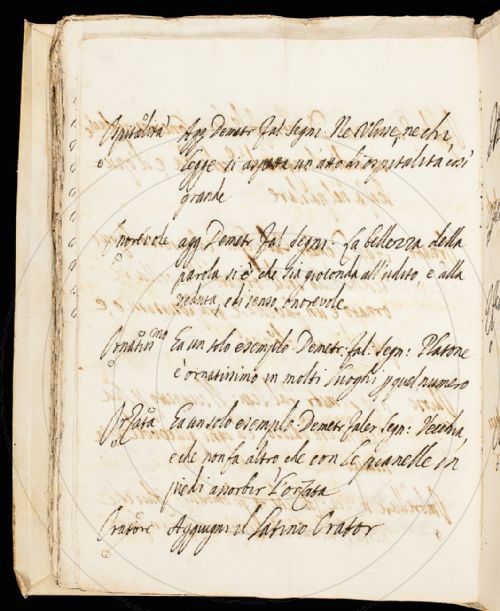 Ospitalità Agg Demetr. Fal. Segni. Ne Ulisse, ne chi
legge si aspetta un atto di ospitalità così
grande
Onorevole agg. Demetr. Fal. Segni. La bellezza della
parola si è che sia gioconda all'udito, e alla
veduta, e di senso, onorevole.
Ornatissimo Ea un solo esempio. Demetr. fal. Segn: Platone
è ornatissimo in molti luoghi p quel numero
Orzata Ea un solo esempio. Demetr. Faler. Segn: Vecchia,
e che non fa altro che con le pianelle in
piedi assorbir l'orzata
Oratore Aggiugni il latino Orator